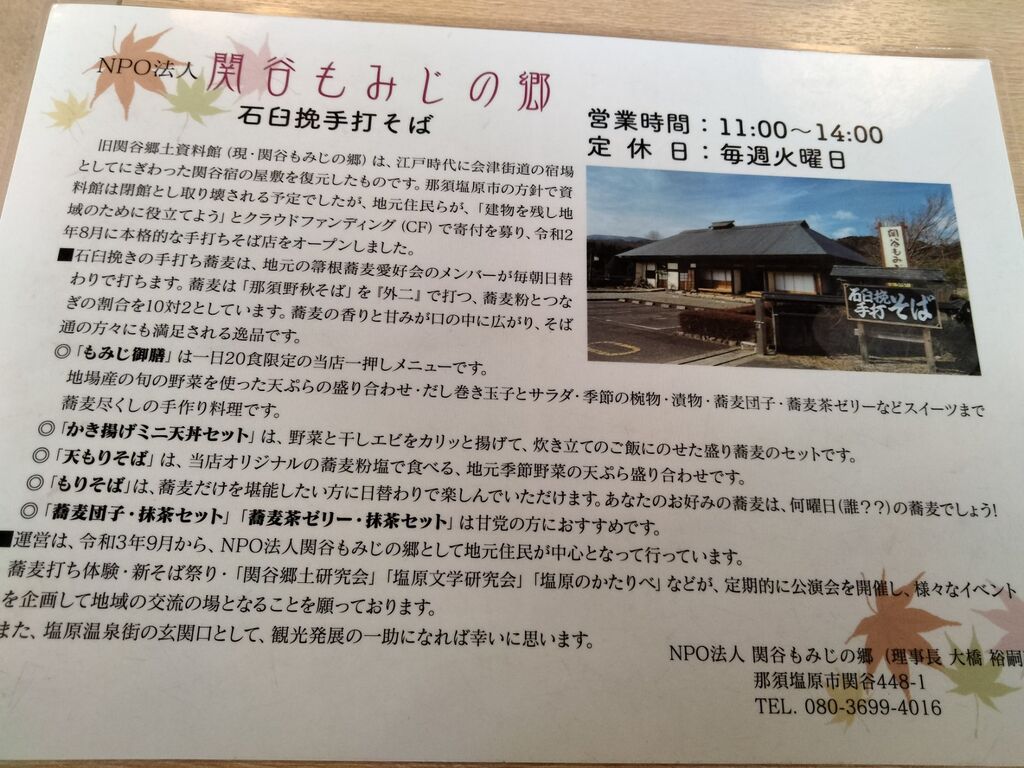 NPO法人 関谷もみじの郷
石臼挽手打そば
営業時間：11:00～14:00
定休日：毎週火曜日
旧関谷郷土資料館（現・関谷もみじの郷）は、江戸時代に会津街道の宿場
としてにぎわった関谷宿の屋敷を復元したものです。那須塩原市の方針で資
料館は閉館とし取り壊される予定でしたが、地元住民らが、「建物を残し地
域のために役立てよう」とクラウドファンディング（CF）で寄付を募り、令和2
年8月に本格的な手打ちそば店をオープンしました。
■石臼挽きの手打ち蕎麦は、地元の箒根蕎麦愛好会のメンバーが毎朝日替
わりで打ちます。蕎麦は「那須野秋そば」を『外二』で打つ、蕎麦粉とつな
ぎの割合を10対2としています。蕎麦の香りと甘みが口の中に広がり、そば
通の方々にも満足される逸品です。
関谷もみ
石臼挽
手打そば
◎「もみじ御膳」は一日20食限定の当店一押しメニューです。
地場産の旬の野菜を使った天ぷらの盛り合わせ・だし巻き玉子とサラダ・季節の椀物・漬物・蕎麦団子・蕎麦茶ゼリーなどスイーツまで
蕎麦尽くしの手作り料理です。
◎「かき揚げミニ天丼セット」は、野菜と干しエビをカリッと揚げて、炊き立てのご飯にのせた盛り蕎麦のセットです。
◎「天もりそば」は、当店オリジナルの蕎麦粉塩で食べる、地元季節野菜の天ぷら盛り合わせです。
◎「もりそば」は、蕎麦だけを堪能したい方に日替わりで楽しんでいただけます。あなたのお好みの蕎麦は、何曜日(誰？?)の蕎麦でしょう!
◎「蕎麦団子・抹茶セット」「蕎麦茶ゼリー・抹茶セット」は甘党の方におすすめです。
■運営は、令和3年9月から、NPO法人関谷もみじの郷として地元住民が中心となって行っています。
蕎麦打ち体験・新そば祭り・「関谷郷土研究会」「塩原文学研究会」「塩原のかたりべ」などが、定期的に公演会を開催し、様々なイベント
を企画して地域の交流の場となることを願っております。
また、塩原温泉街の玄関口として、観光発展の一助になれば幸いに思います。
NPO法人 関谷もみじの郷（理事長 大橋 裕嗣
那須塩原市関谷448-1
TEL. 080-3699-4016